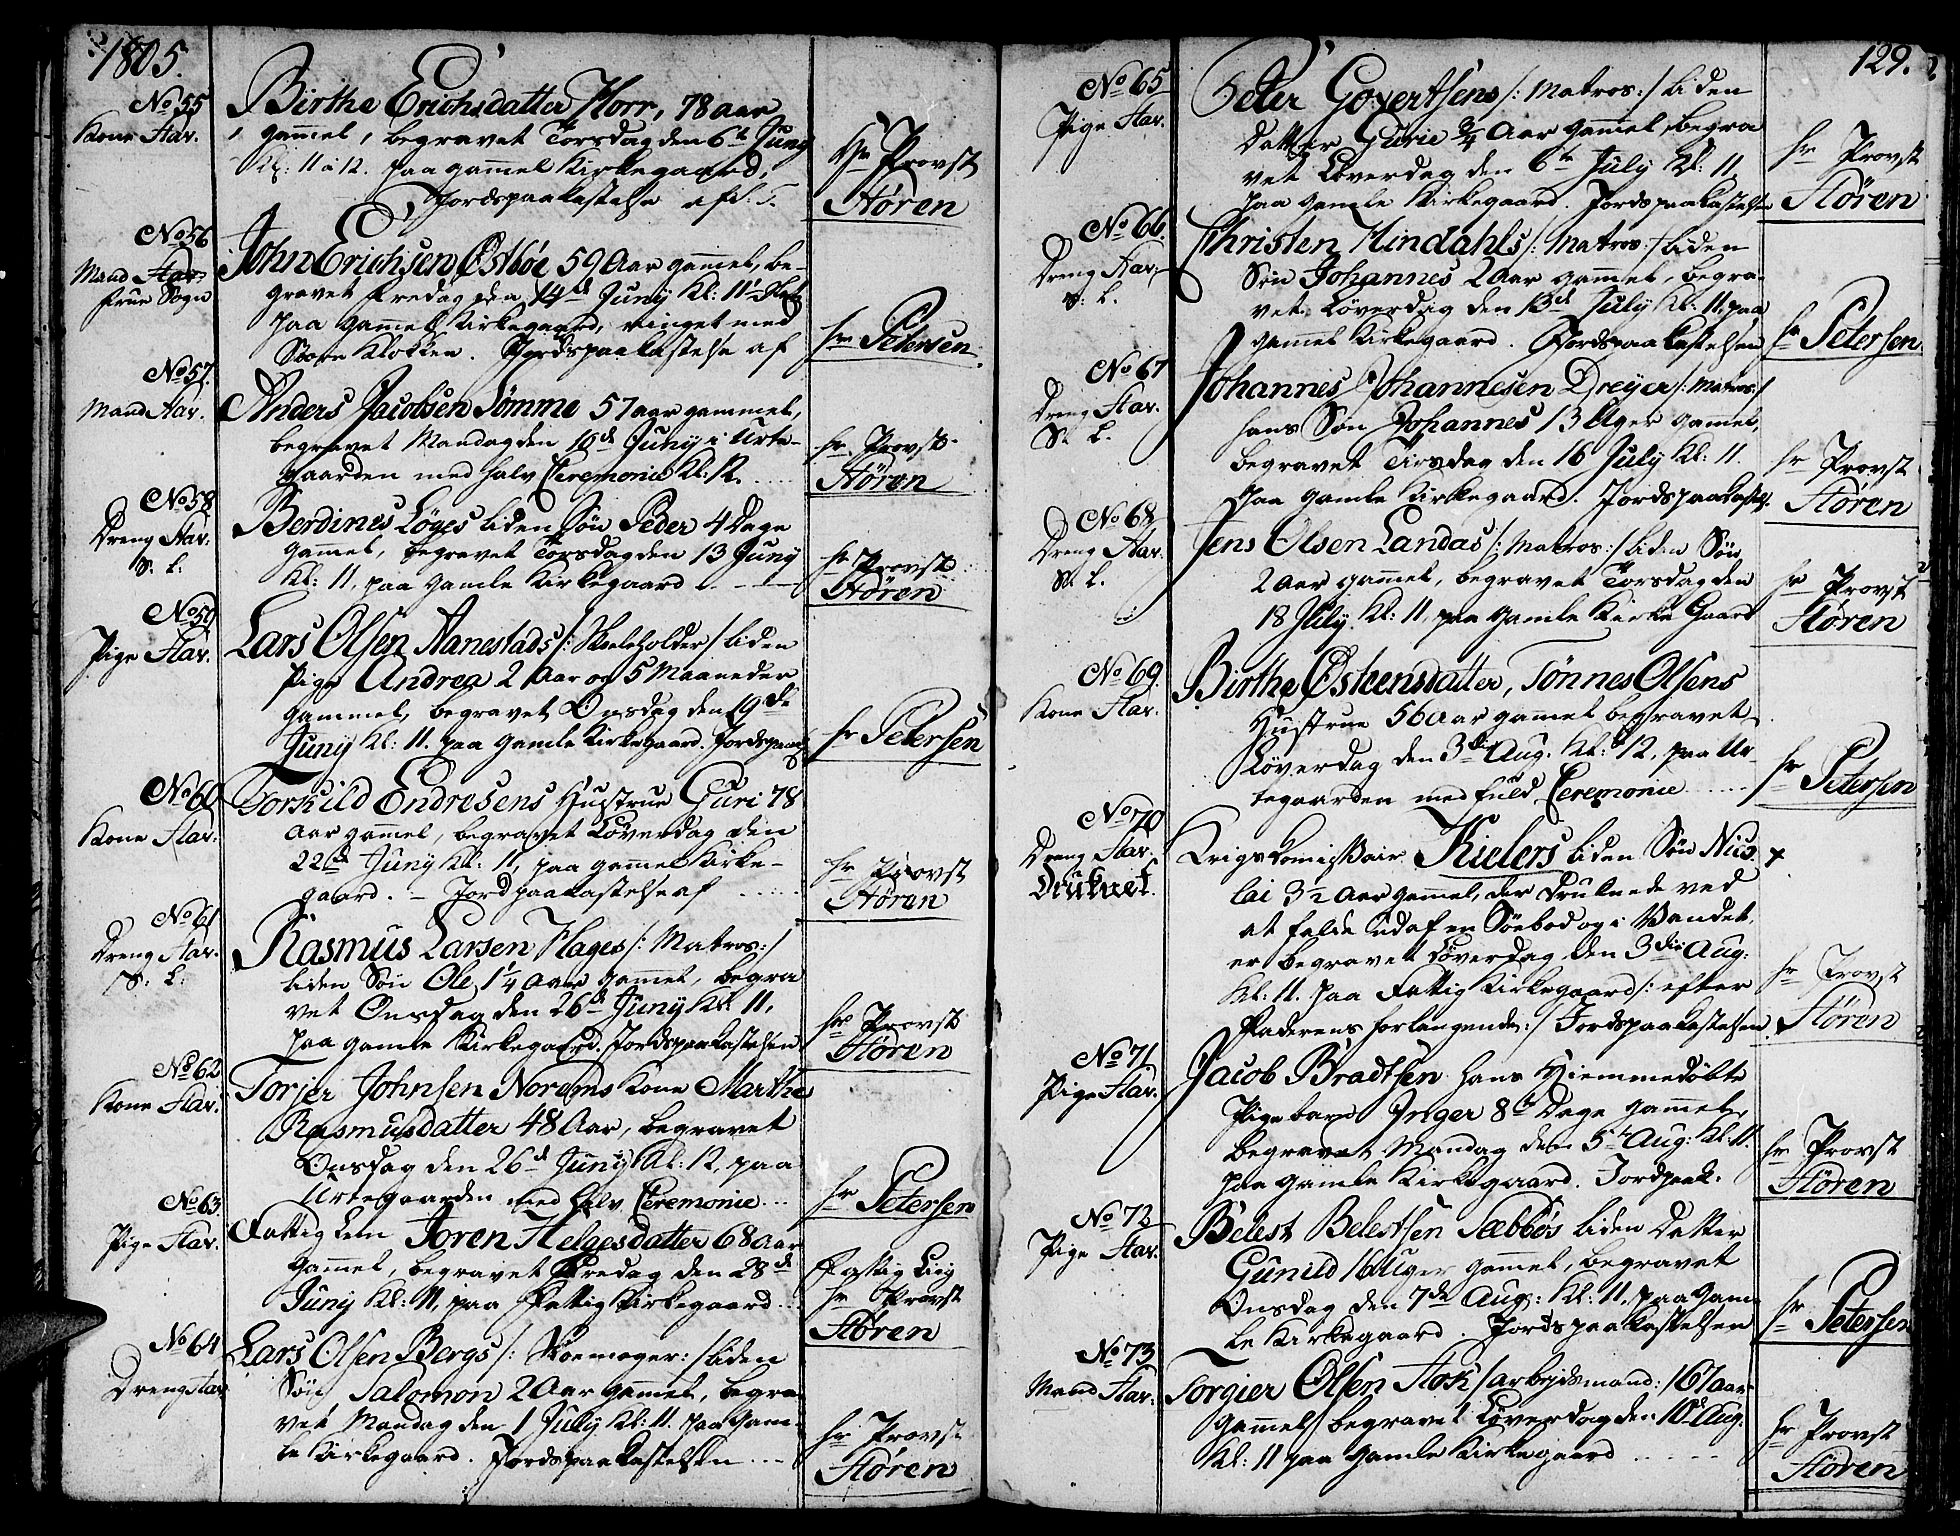 1805.
No 55
Kone Stav.
Birthe Erichsdatter Horr, 78 aar
gamel, begravet Torsdag den 6te Juny
Kl: 11 a 12. paa gamel Kirkegaard,
Jordspaakastelse af d. T.
Hr Provst
Støren
No 56
Mand Stav.
frue Sogn
John Erichsen Østbøe 59 Aar gamel, be-
gravet Fredag den 14de Juny Kl: 11
paa gamel Kirkegaard, ringet med
Store Klokken. Jordspaakastelse af
hr Petersen.
No 57.
Mand Stav.
Anders Jacobsen Sømme 57 aar gammel,
begravet Mandag den 10de Juny i Urte-
gaarden med halv Ceremonie Kl. 12.
hr. Provst
Støren
No 58
Dreng Stav:
S. L.
Berdines Løges liden Søn Peder 4 Dage
gamel, begravet Torsdag den 13 Juny
Kl: 11, paa gamle Kirkegaard.
hr Provst
Støren
No 59
Pige Stav.
Lars Olsen Aanestads /: Skoleholder / liden
Pige Andrea 2 Aar og 5 Maaneder
gammel, begravet Onsdag den 19de
Juny Kl: 11. paa gamle Kirkegaard. Jordspaak
hr Petersen
No 60
Kone Stav.
Torkild Endresens Hustrue Guri 78
Aar gamel, begravet Løverdag den
22de Juny Kl: 11, paa gamel Kirke-
gaard. – Jordpaakastelse af
hr Provst
Støren
No 61
Dreng Stav.
S. L.
Rasmus Larsen Hages /: Matros: /
liden Søn Ole 1 1/4 Aar gamel, begra
vet Onsdag den 26de Juny Kl. 11,
paa gamle Kirkegaard. Jordspaakastelsen
hr Provst
Støren
No 62
Kone Stav.
Torjer Johnsen Norems Kone Marthe
Rasmusdatter 48 Aar, begravet
Onsdag den 26de Juny Kl: 12, paa
Urtegaarden med halv Ceremonie
hr Petersen
No 63.
Pige Stav.
Fattig Lem Joren Helgesdatter 68 Aar
gamel, begravet Fredag den 28de
Juny Kl: 11, paa Fattig Kirkegaard
Fattig Liig
hr Provst
Støren
No 64
Dreng Stav
Lars Olsen Bergs /: Skoemager: / liden
Søn Salomon 2 Aar gamel, begra-
vet Mandag den 1 July Kl: 11. paa Gam-
le Kirkegaard. Jordspaakastelsen
hr Provst
Støren
129.
No 65
Pige Stav.
Peter Govertsens /: Matros: / liden
Datter Gurie 3/4 Aar gamel, begra
vet Løverdag den 6te July Kl: 11,
paa gamle Kirkegaard. Jordspaakastelsen
hr Provst
Støren
No 66.
Dreng Stav.
S: L.
Christen Hindahls /: Matros: / liden
Søn Johannes 2 Aar gamel, begra-
vet Løverdag den 13de July Kl: 11. paa
gamel Kirkegaard. Jordspaakastelsen
hr Petersen
No 67
Dreng Stav.
S. L.
Johannes Johannesen Dreyer /: Matros: /
hans Søn Johannes 13 Uger gamel,
begravet Tirsdag den 16 July Kl: 11.
paa gamle Kirkegaard. Jordspaakastelse
hr Provst
Støren
No 68
Dreng Stav.
S. L.
Jens Olsen Landas /: Matros: / liden Søn
2 Aar gamel, begravet Torsdag den
18 July Kl: 11, paa gamle Kirke Gaard
hr Provst
Støren
No 69.
Kone Stav.
Birthe Østensdatter, Tønnes Olsens
Hustrue 56 Aar gamel begravet
Løverdag den 3die Aug. Kl: 12, paa Ur-
tegaarden med fuld Ceremonie
hr Petersen
No 70
Dreng Stav.
Druknet.
Krigs Comissair Kielers liden Søn Nico
lai 3 1/2 Aar gamel, der Druknede ved
at falde ud af en Søebod og i Vandet,
er begravet Løverdag den 3die Aug:
Kl: 11. paa Fattig Kirkegaard /: efter
Faderens forlangende: / Jordspaakastelsen
hr Provst
Støren
No 71
Pige Stav.
Jacob Bradtsen hans Hiemmedøbte
Pigebarn Inger 8te Dage gamel,
begravet Mandag den 5te Aug: Kl: 11.
paa gamle Kirkegaard. Jordpaak.
hr Provst
Støren
No 72
Pige Stav.
Belest Belestsen Sæbbøs liden Datter
Gunild 16 Uger gamel, begravet
Onsdag den 7de Aug: Kl: 11, paa Gam-
le Kirkegaard. Jordspaakastelsen
hr Petersen
No 73
Mand Stav.
Torgier Olsen Stok / arbejdsmand: / 67 aar
gamel begravet Løverdag den 10de Aug:
Kl: 11 paa gamle Kirkegaard
hr Provst
Støren